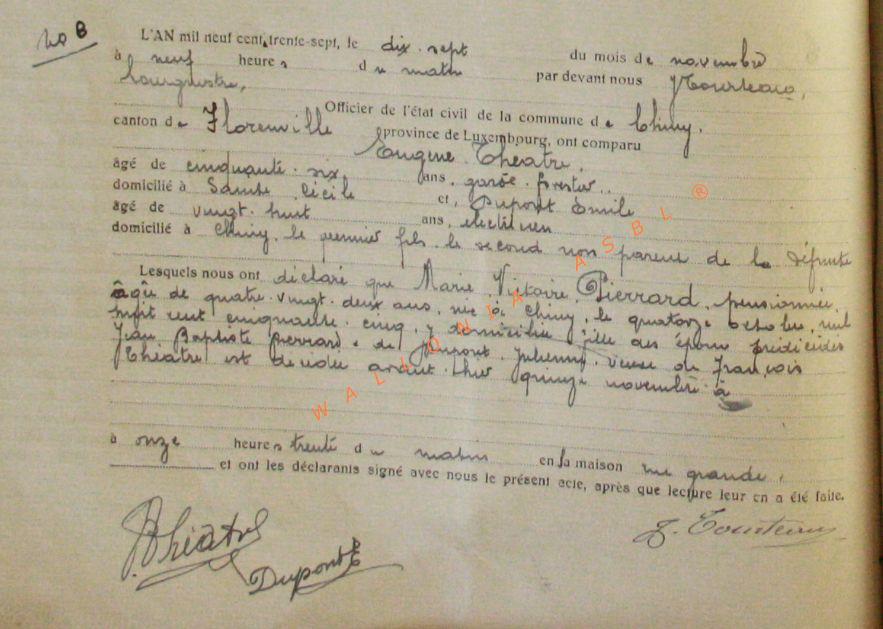 No 8
L'AN mil neuf cent trente-sept, le dix-sept du mois de novembre
à neuf heures du matin par devant nous Tourteau,
bourgmestre,
Officier de l'état civil de la commune de Chiny,
canton de Florenville province de Luxembourg, ont comparu
Eugène Théatre,
âgé de cinquante-six ans, garde forestier,
domicilié à Sainte Cécile et, Dupont Emile
âgé de vingt-huit ans, électricien
domicilié à Chiny, le premier fils le second non parent de la défunte
Lesquels nous ont déclaré que Marie Victoire Pierrard, pensionnée,
âgée de quatre-vingt-deux ans, née à Chiny, le quatorze octobre mil
huit cent cinquante-cinq, y domiciliée, fille des époux prédécédés
Jean Baptiste Pierrard & de Dupont Julienne, veuve de François
Théâtre est décédée avant-hier quinze novembre à
à onze heures trente du matin en sa maison rue grande.
et ont les déclarants signé avec nous le présent acte, après que lecture leur en a été faite.
Théatre
Dupont E
Tourteau
WALLONIA ASBL ®